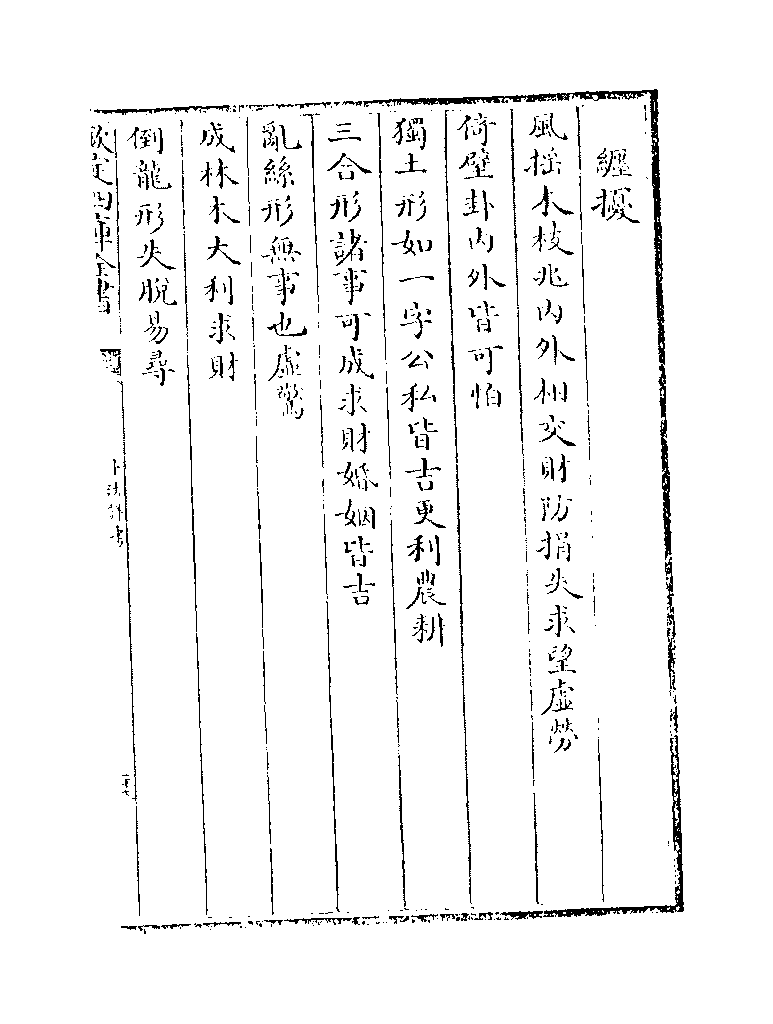 纏擾
風揺木枝兆内外相交財防損失求望虚勞
倚壁卦内外皆可怕
獨土形如一字公私皆吉更利農耕
三合形諸事可成求財婚姻皆吉
亂絲形無事也虚驚
成林木大利求財
倒龍形失脱易尋
欽定四庫全書
卜法詳考